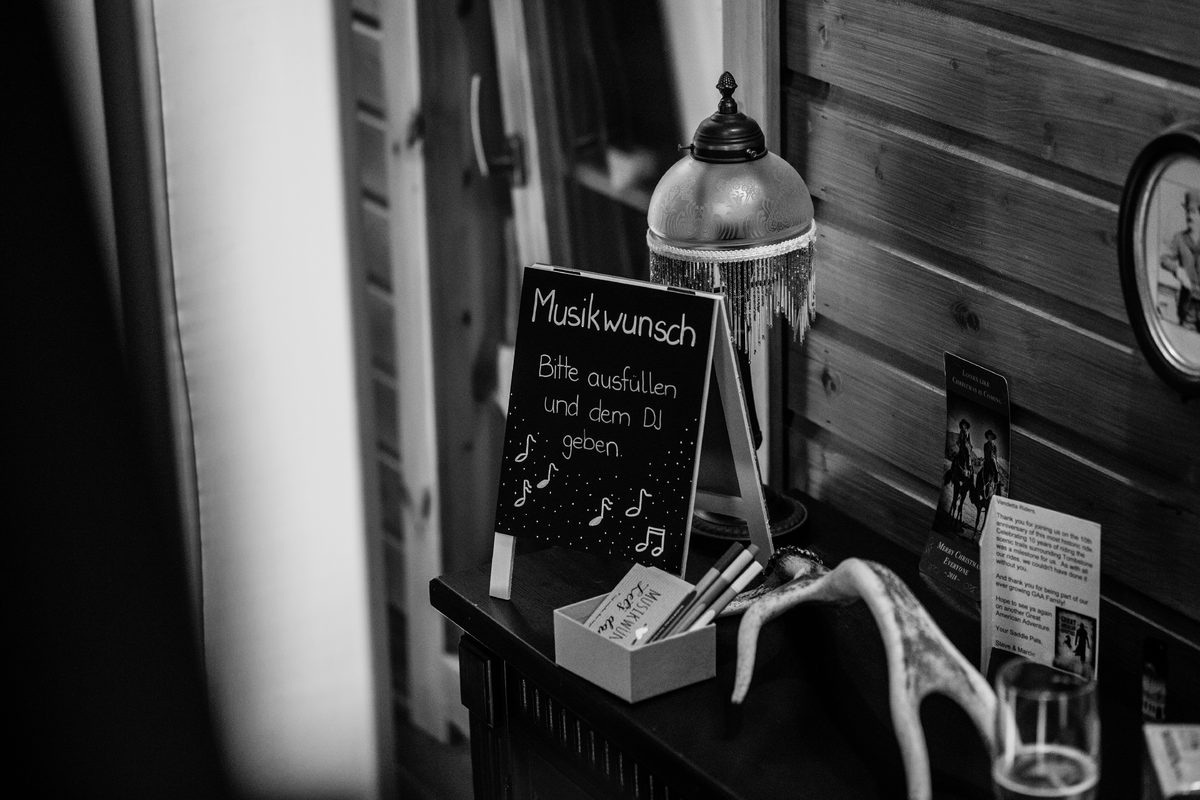 Musikwunsch
Bitte ausfüllen
und dem DJ
geben
MUSIKWUN
Let's da
LOOKS LIKE
CHRISTMAS IS COMING
MERRY CHRISTMAS
EVERYONE
- 2018 -
Vendetta Riders,
Thank you for joining us on the 10th
anniversary of this most historic ride.
Celebrating 10 years of riding the
scenic trails surrounding Tombstone
was a milestone for us. As with all
our rides, we couldn't have done it
without you.
And thank you for being part of our
ever growing GAA Family!
Hope to see ya again
on another Great
American Adventure
Your Saddle Pals,
Steve & Marcie
GREAT
AMERICAN